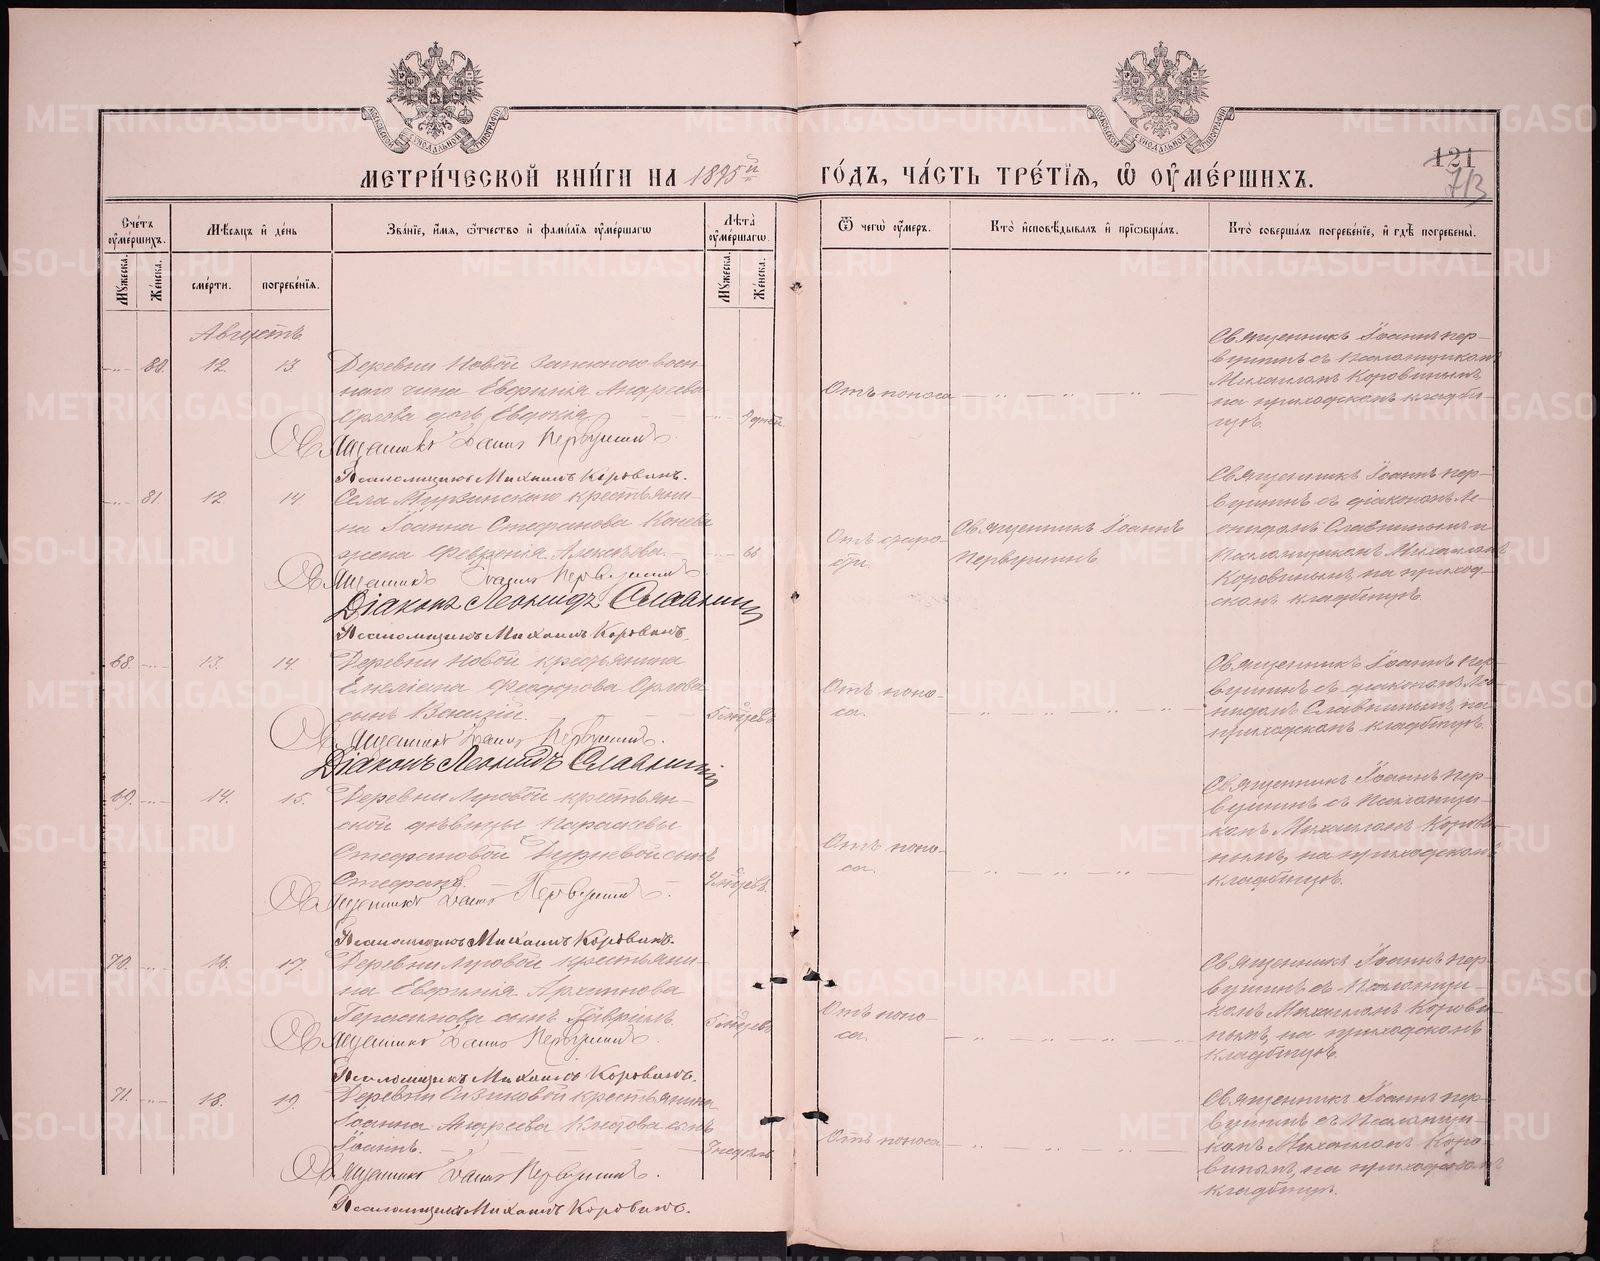 МЕТРИ́ЧЕСКОЙ КНИ́ГИ НА 1895й ГО́ДЪ, ЧА́СТЬ ТРЕ́ТЇѦ, Ѡ҆ ОУ҆МЕ́РШИХЪ.
121
713
Сче́тъ оу҆ме́ршихъ.
Мѣ́сяцъ и҆ де́нь
Зва́нїе, и҆́мя, ѻ҆́тчество и҆ фами́лїя оу҆ме́ршагѡ
Лѣ́та оу҆ме́ршагѡ.
Ѿ чегѡ̀ оу҆́меръ.
Кто̀ и҆сповѣ́дывалъ и҆ прїѡбща́лъ.
Кто̀ соверша́лъ погребе́нїе, и҆ гдѣ̀ погребены̀.
Мꙋ́жеска.
Же́нска.
сме́рти.
погребе́нїя.
Мꙋ́жеска.
Же́нска.
Августъ
80.
12.
13.
Деревни Новой Запасного воен-
наго чина Евфимія Андреева
Орлова дочь Евдокія
Священникъ Іоаннъ Первушинъ.
Псаломщикъ Михаилъ Коровинъ.
Отъ поноса
Священникъ Іоаннъ Пер-
вушинъ съ Псаломщикомъ
Михаиломъ Коровинымъ,
на приходскомъ кладби-
щѣ.
81.
12
14.
Села Мурзинскаго крестьяни-
на Іоанна Стефанова Конева
жена Феврονія Алексѣева.
66
Священникъ Іоаннъ Первушинъ.
Діаконъ Леонидъ Славнинъ
Псаломщикъ Михаилъ Коровинъ.
Отъ старо-
сти.
Священникъ Іоаннъ
Первушинъ
Священникъ Іоаннъ Пер-
вушинъ съ діакономъ Ле-
онидомъ Славнинымъ и
Псаломщикомъ Михаиломъ
Коровинымъ, на приход-
скомъ кладбищѣ.
68.
13.
14.
Деревни Новой крестьянина
Емеліана Феодорова Орлова
сынъ
Священникъ Іоаннъ Первушинъ.
Діаконъ Леонидъ Славнинъ
Отъ поно-
са.
Священникъ Іоаннъ Пер-
вушинъ съ діакономъ Лео-
нидомъ Славнинымъ, на
приходскомъ кладбищѣ.
69.
14.
15.
Деревни Луговой крестьян-
ской дѣвицы Параскевы
Стефановой сынъ
Стефанъ.
Священникъ Іоаннъ Первушинъ.
Псаломщикъ Михаилъ Коровинъ.
Отъ поно-
са.
Священникъ Іоаннъ Пер-
вушинъ съ Псаломщи-
комъ Михаиломъ Корови-
нымъ, на приходскомъ
кладбищѣ.
70.
16.
17.
Деревни Луговой крестьяни-
на Евфимія Архипова
Герасимова сынъ Гавріилъ.
Священникъ Іоаннъ Первушинъ.
Псаломщикъ Михаилъ Коровинъ.
Отъ поно-
са.
Священникъ Іоаннъ Пер-
вушинъ съ Псаломщи-
комъ Михаиломъ Корови-
нымъ, на приходскомъ
кладбищѣ.
71.
18.
19.
Деревни Сизиковой крестьянина
Іоанна Андреева сынъ
Іоаннъ.
Священникъ Іоаннъ Первушинъ.
Псаломщикъ Михаилъ Коровинъ.
Отъ поноса
Священникъ Іоаннъ Пер-
вушинъ съ Псаломщи-
комъ Михаиломъ Коро-
винымъ, на приходскомъ
кладбищѣ.
METRIKI.GASO-URAL.RU